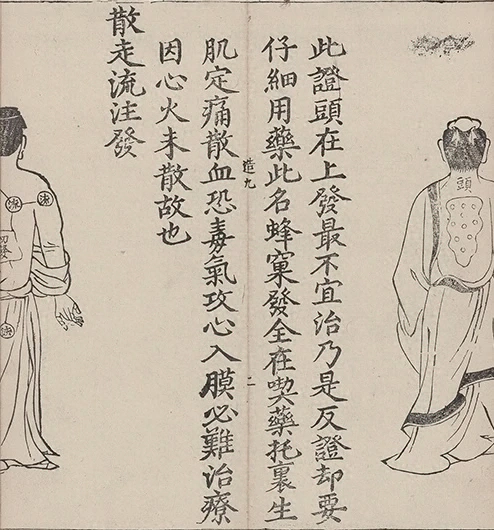 頭
此證頭在上發最不宜治乃是反證却要
仔細用藥此名蜂窠發全在喫藥托裏生
造九
二
肌定痛散血恐毒氣攻心入膜必難治療
因心火未散故也
散走流注發
初發